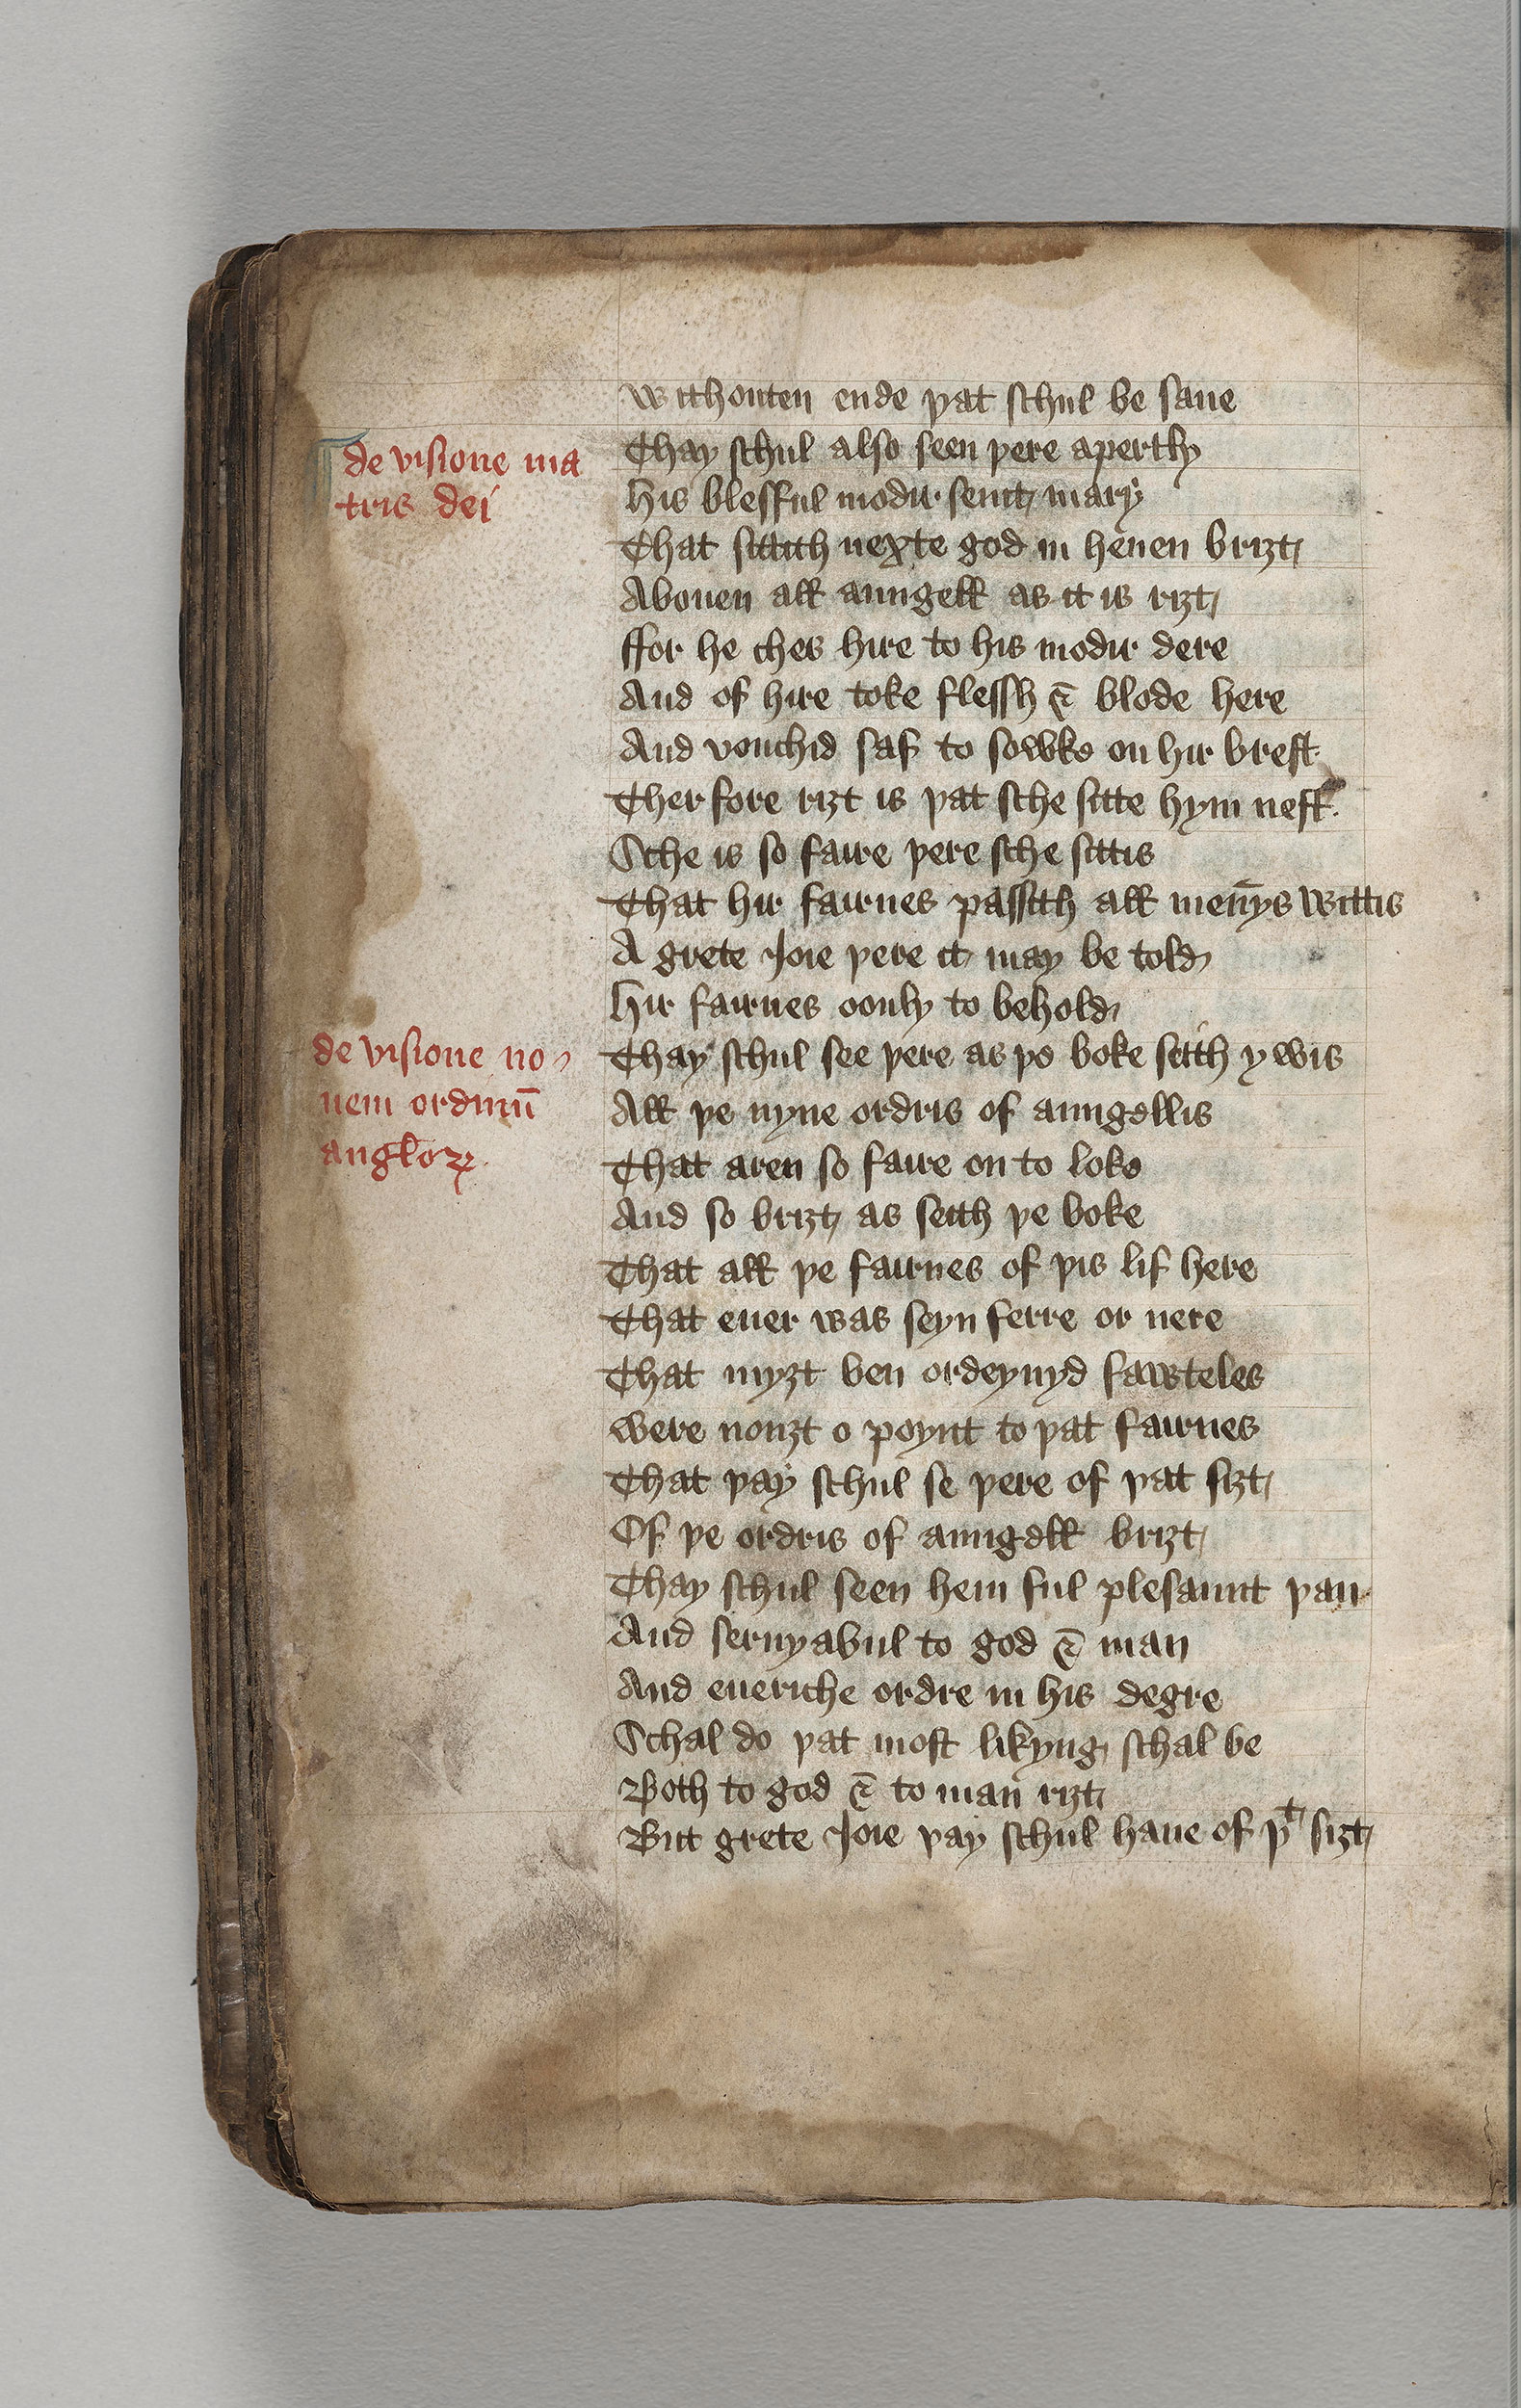 withouten ende þat schul be saue
de visione ma
tris dei
Thay schul also seen þere apertly
His blesful modir seint mary
That sittith nexte god in heuen briȝt
Abouen all aungell as it is riȝt
ffor he ches hire to his modir dere
And of hire toke flessh & blode here
And vouchid saf to sowke on hir brest
Therfore riȝt is þat sche sitte hym nest
Sche is so faire þere sche sittis
That hir fairnes passith all menys wittis
A grete Joie þere it may be told
Hir fairnes oonly to behold
de visione no
uem ordinū
angloꝝ
Thay schul see þere as þe boke seith y wis
All þe nyne ordris of aungellis
That aren so faire on to loke
And so briȝt as seith þe boke
That all þe fairnes of þis lif here
That euer was seyn ferre or nere
That myȝt ben ordeynyd fawteles
were nouȝt o poynt to þat fairnes
That þay schul se þere of þat siȝt
Of þe ordris of aungell briȝt
Thay schul seen hem ful plesaunt þan
And seruyabul to god & man
And eueriche ordre in his degre
Schal do þat most likyng schal be
Both to god & to man riȝt
But grete Joie þay schul haue of þᵗ siȝt